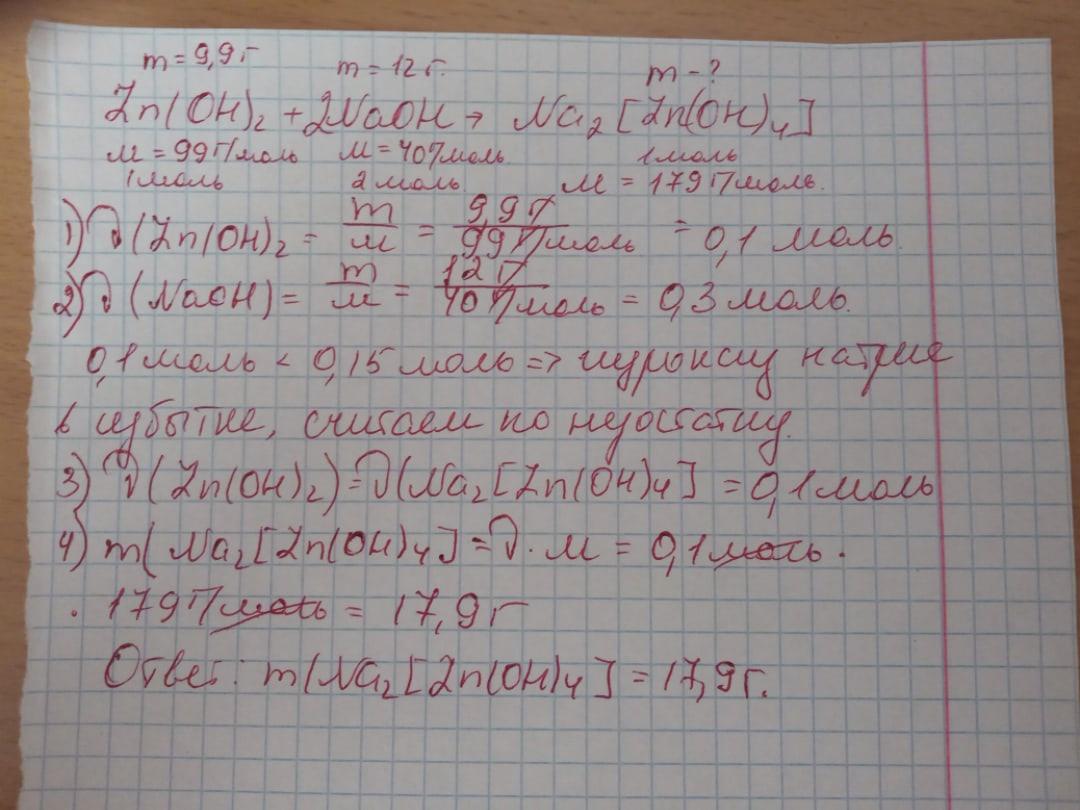 m = 9,9 г m = 12 г. m - ?
Zn(OH)₂ + 2NaOH → Na₂[Zn(OH)₄]
M = 99 г/моль M = 40 г/моль 1 моль
1 моль 2 моль. M = 179 г/моль.
1) ν(Zn(OH)₂ = m/M = 9,9 г/99 г/моль = 0,1 моль.
2) ν(NaOH) = m/M = 12 г/40 г/моль = 0,3 моль.
0,1 моль < 0,15 моль => гидроксид натрия
в избытке, считаем по недостатку.
3) ν(Zn(OH)₂) = ν(Na₂[Zn(OH)₄] = 0,1 моль
4) m(Na₂[Zn(OH)₄] = ν · M = 0,1 моль ·
· 179 г/моль = 17,9 г
Ответ: m(Na₂[Zn(OH)₄] = 17,9 г.